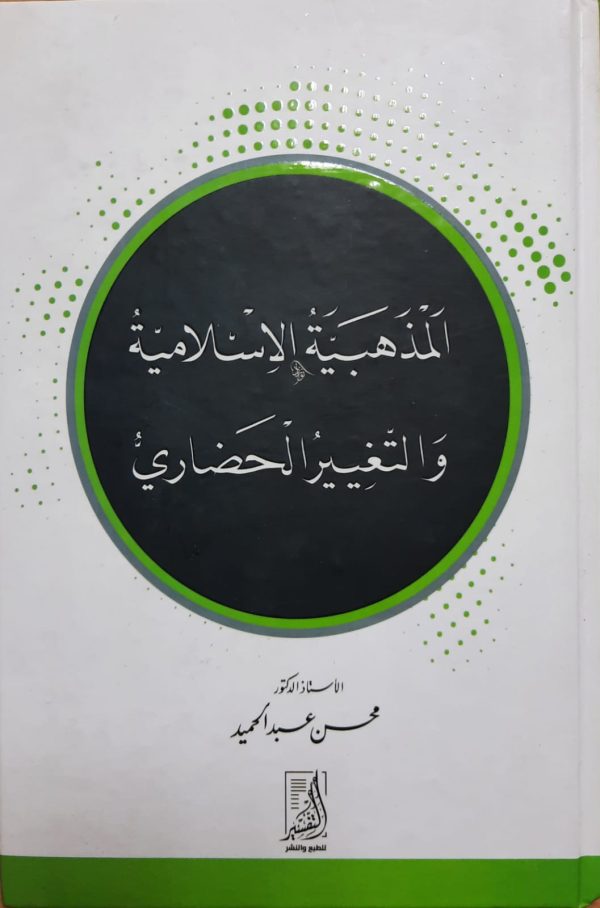 المَذْهَبَيَّةُ الإِسْلاميّةُ
وَالتَّغِييرُ الْحَضَاريُّ
الأستاذ الدكتور
محسن عبد الحميد
التفسير
للطبع والنشر